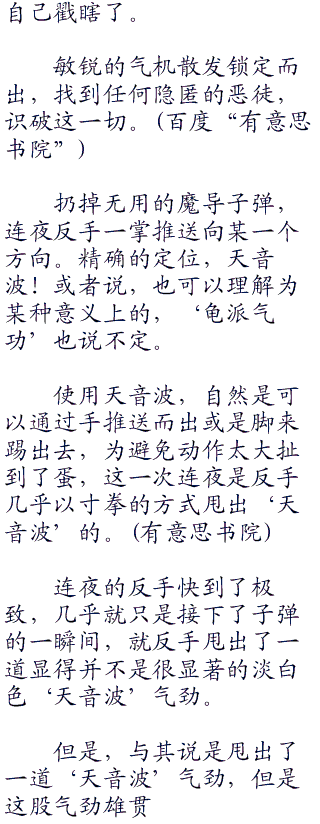 自己戳瞎了。
敏锐的气机散发锁定而
出，找到任何隐匿的恶徒，
识破这一切。(百度“有意思
书院”)
扔掉无用的魔导子弹，
连夜反手一掌推送向某一个
方向。精确的定位，天音
波！或者说，也可以理解为
某种意义上的，‘龟派气
功’也说不定。
使用天音波，自然是可
以通过手推送而出或是脚来
踢出去，为避免动作太大扯
到了蛋，这一次连夜是反手
几乎以寸拳的方式甩出‘天
音波’的。(有意思书院)
连夜的反手快到了极
致，几乎就只是接下了子弹
的一瞬间，就反手甩出了一
道显得并不是很显著的淡白
色‘天音波’气劲。
但是，与其说是甩出了
一道‘天音波’气劲，但是
这股气劲雄贯